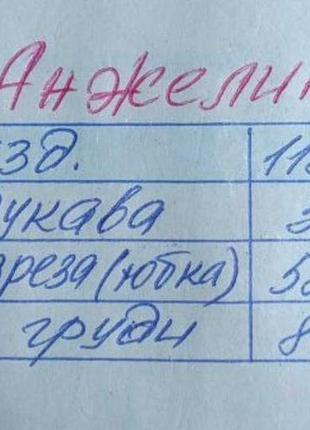 Анжели
изд. 11
рукава 3
зреза (юбка) 5
груди 8